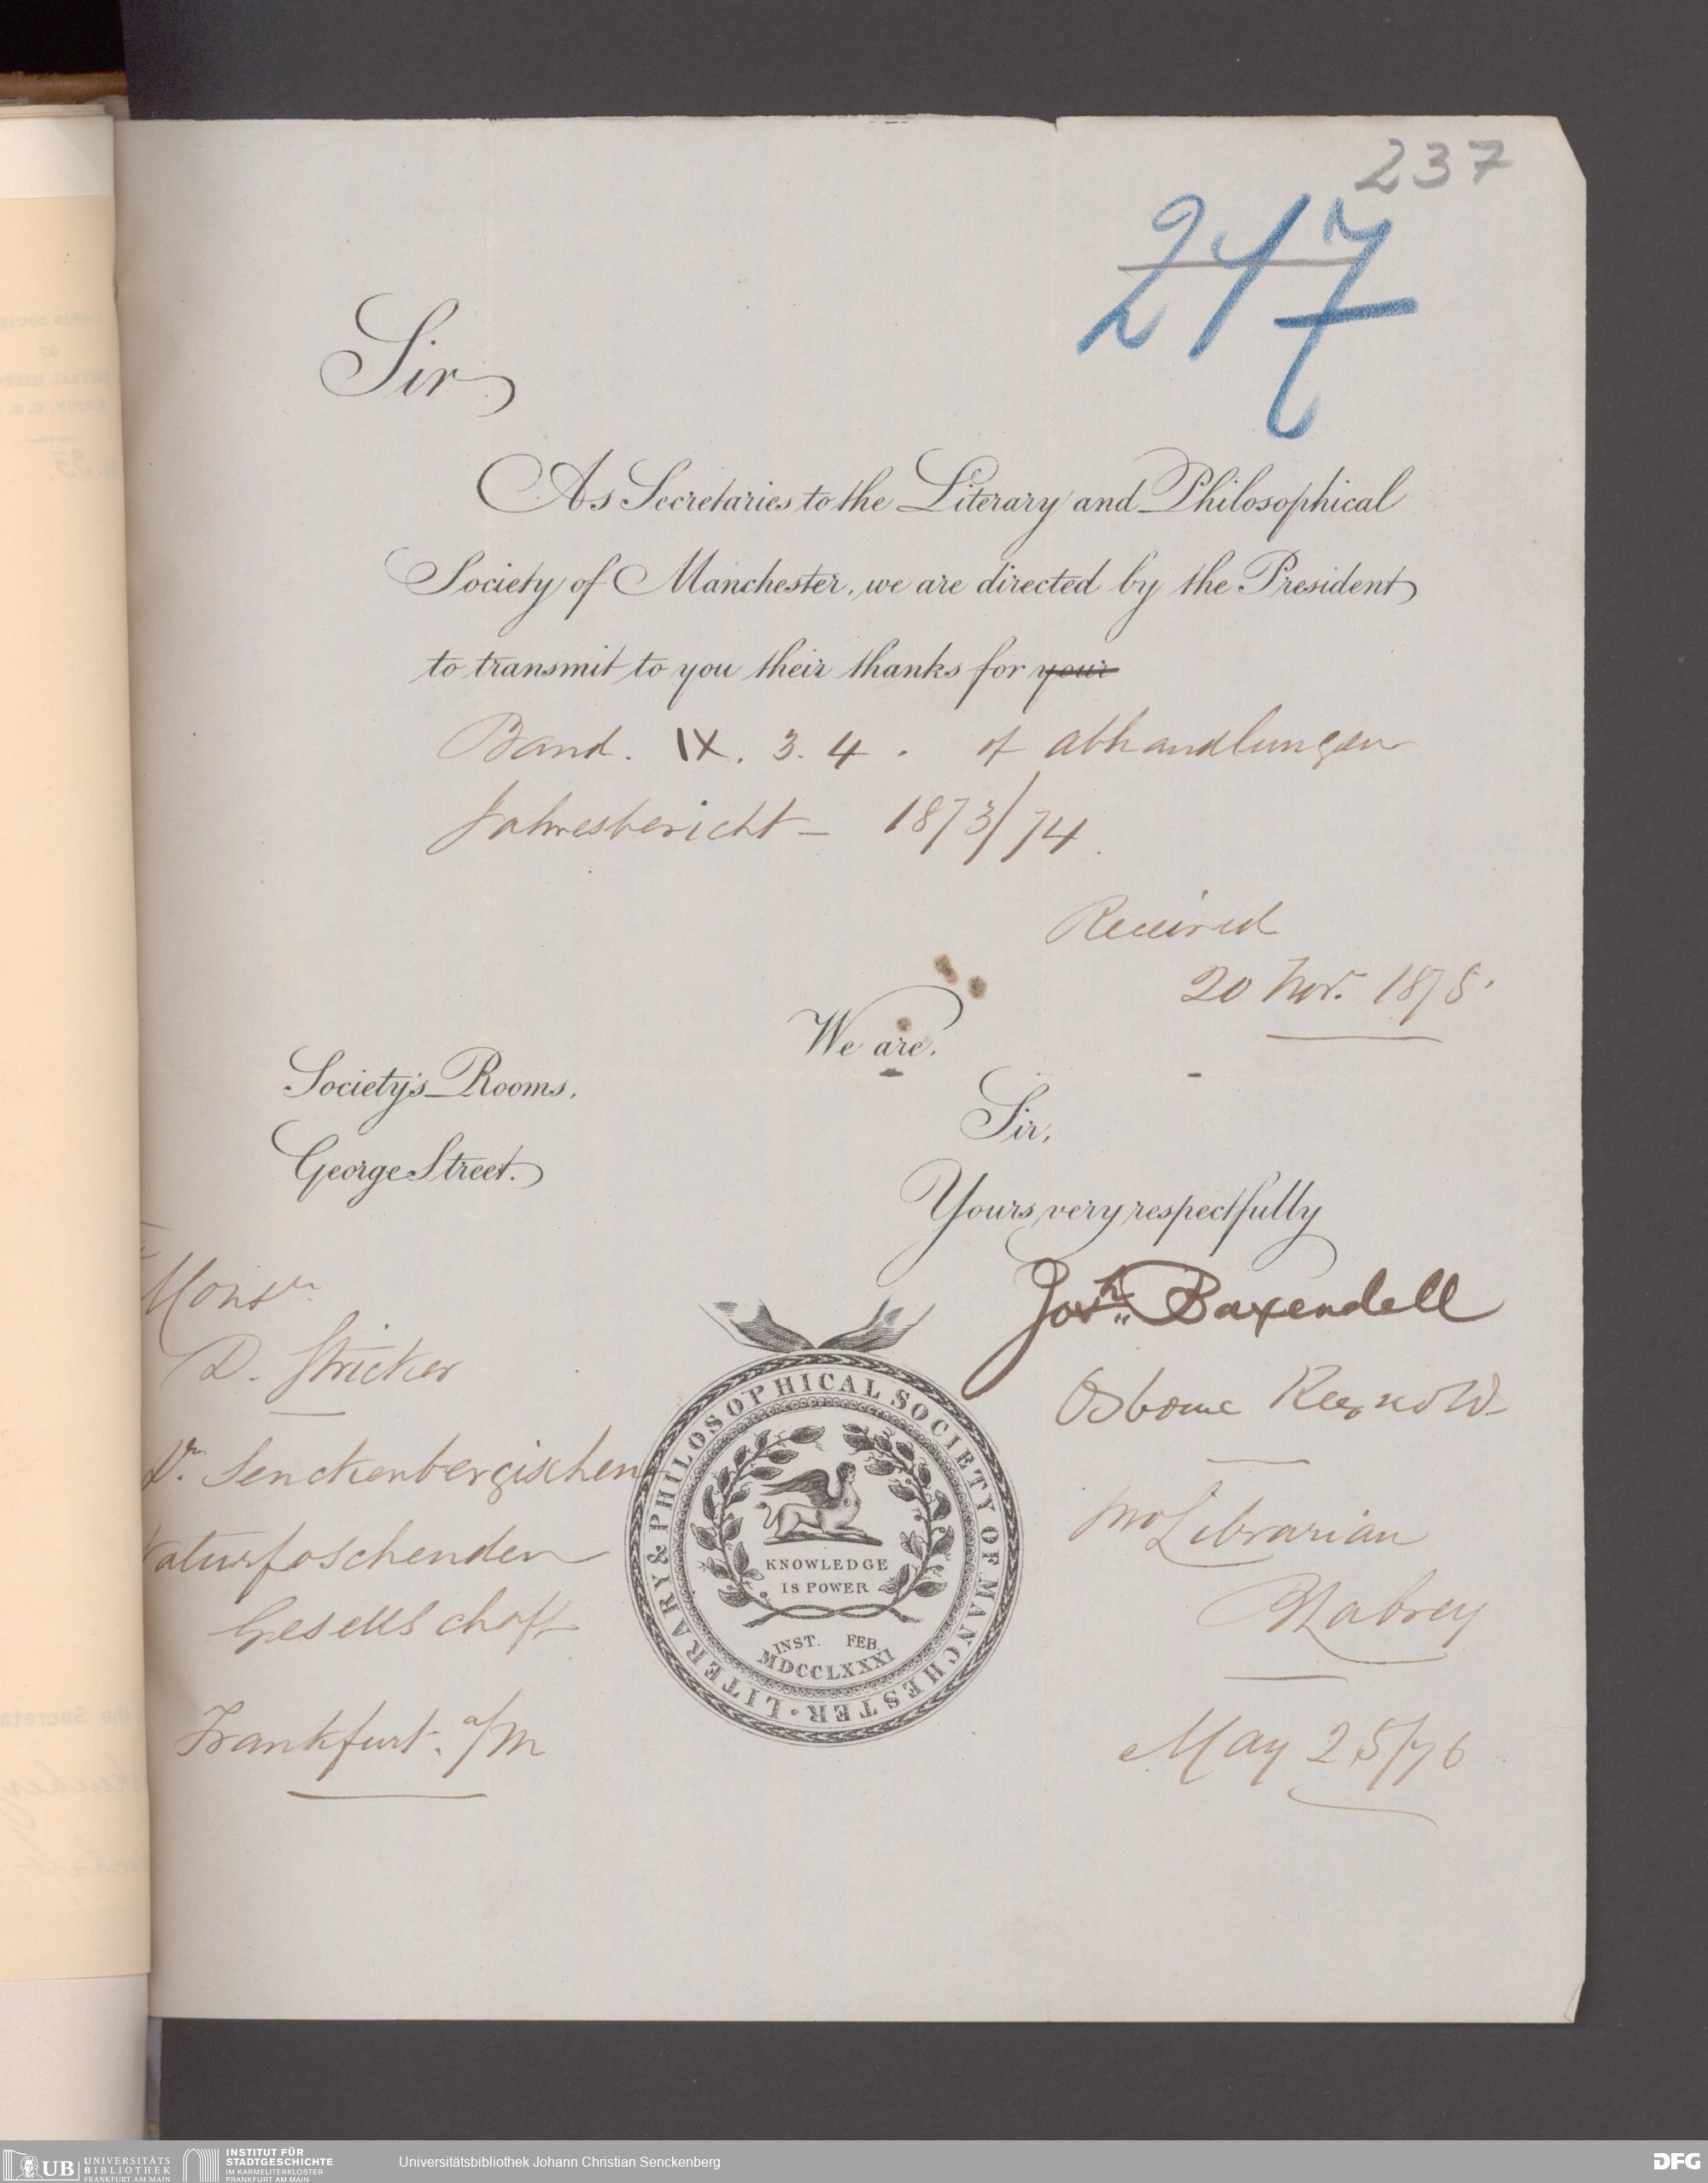 237
217
Sir
As Secretaries to the Literary and Philosophical
Society of Manchester, we are directed by the President
to transmit to you their thanks for your
Band. IX. 3. 4. of Abhandlungen
Jahresbericht – 1873/74.
Received
20 Nov. 1875.
We are.
Society's Rooms,
George Street.
Sir,
Yours very respectfully
Josh. Baxendell
Osborne Reynolds
pro Librarian
Monsr
D. Stricker
Dr. Senckenbergischen
Naturfoschenden
Gesellschaft
Frankfurt. a/M
May 25/76
LITERARY & PHILOSOPHICAL SOCIETY OF MANCHESTER
KNOWLEDGE
IS POWER
INST. FEB.
MDCCLXXXI
UB UNIVERSITÄTS
BIBLIOTHEK
FRANKFURT AM MAIN
INSTITUT FÜR
STADTGESCHICHTE
IM KARMELITERKLOSTER
FRANKFURT AM MAIN
Universitätsbibliothek Johann Christian Senckenberg
DFG